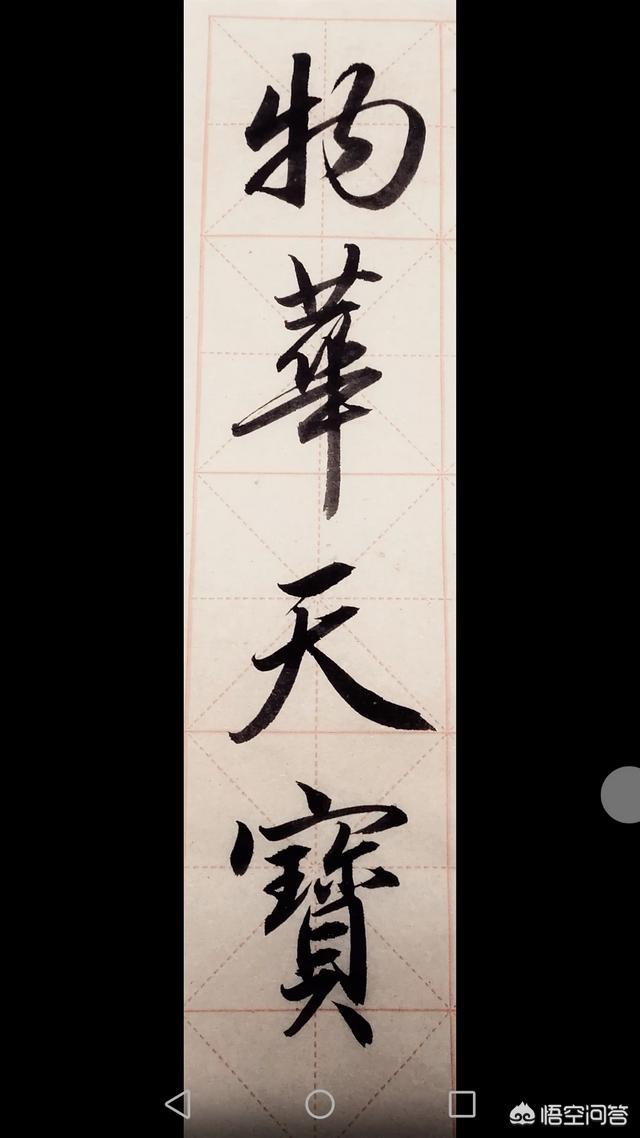 物華天寶
悟空问答